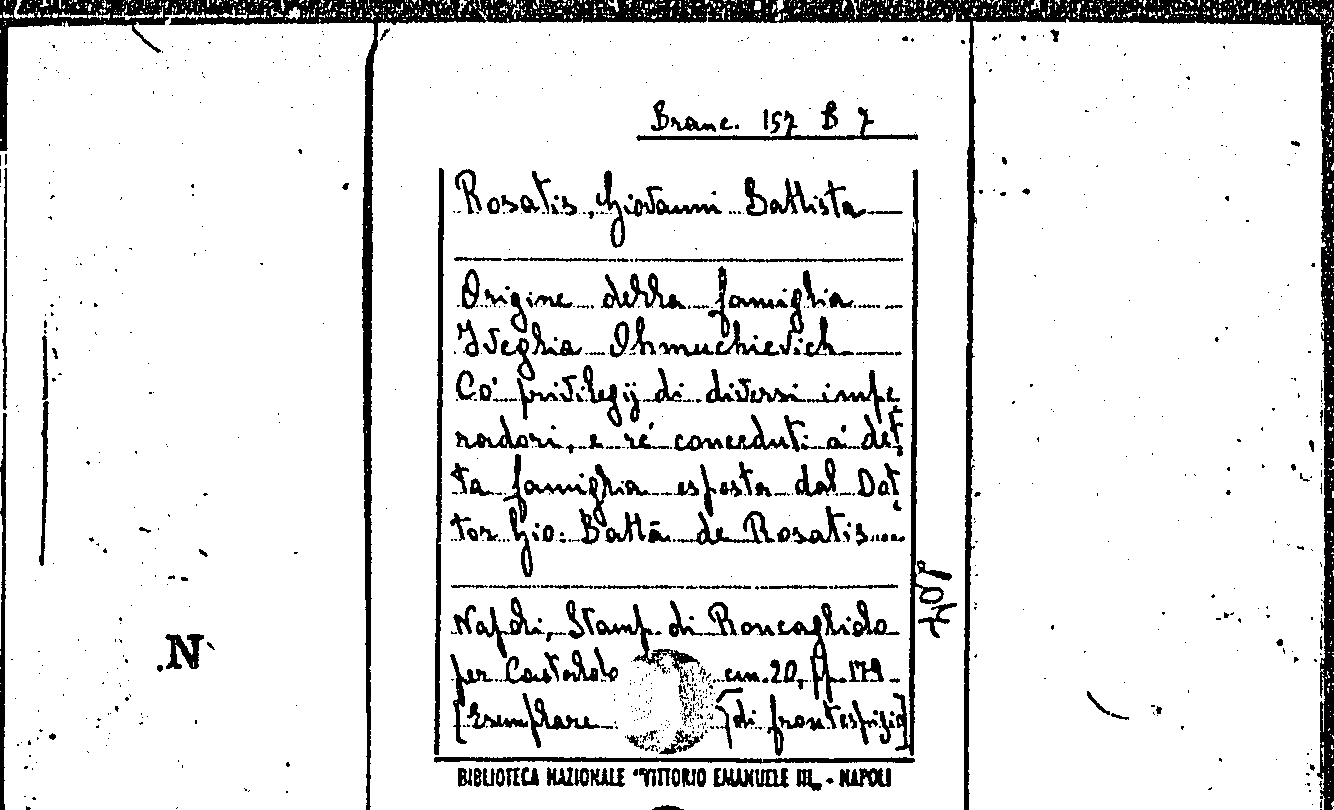 Branc. 157 B 7
Rosatis, Giovanni Battista
Origine della famiglia
Iveglia Ohmuchievich
Co' privilegij di diversi impe
radori, e re' conceduti a' det
ta famiglia esposta dal Dot
tor Gio: Battā de Rosatis
Napoli, Stamp. di Roncagliolo
per Castaldo cm. 20, pp. 179
[Esemplare di frontespizio]
N
BIBLIOTECA NAZIONALE "VITTORIO EMANUELE III„ - NAPOLI